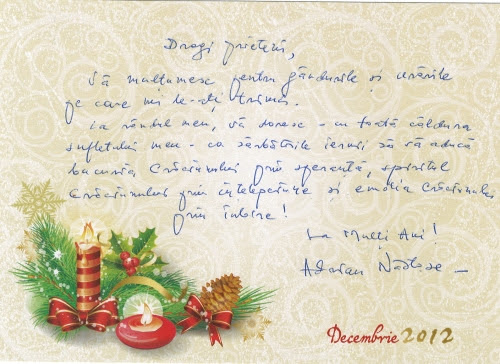 Dragi prieteni,
Vă mulțumesc pentru gândurile și urările
pe care mi le-ați trimis.
La rândul meu, vă doresc - cu toată căldura
sufletului meu - ca sărbătorile iernii să vă aducă
bucuria Crăciunului prin speranță, spiritul
Crăciunului prin înțelepciune și emoția Crăciunului
prin iubire!
La Mulți Ani!
Adrian
Decembrie 2012